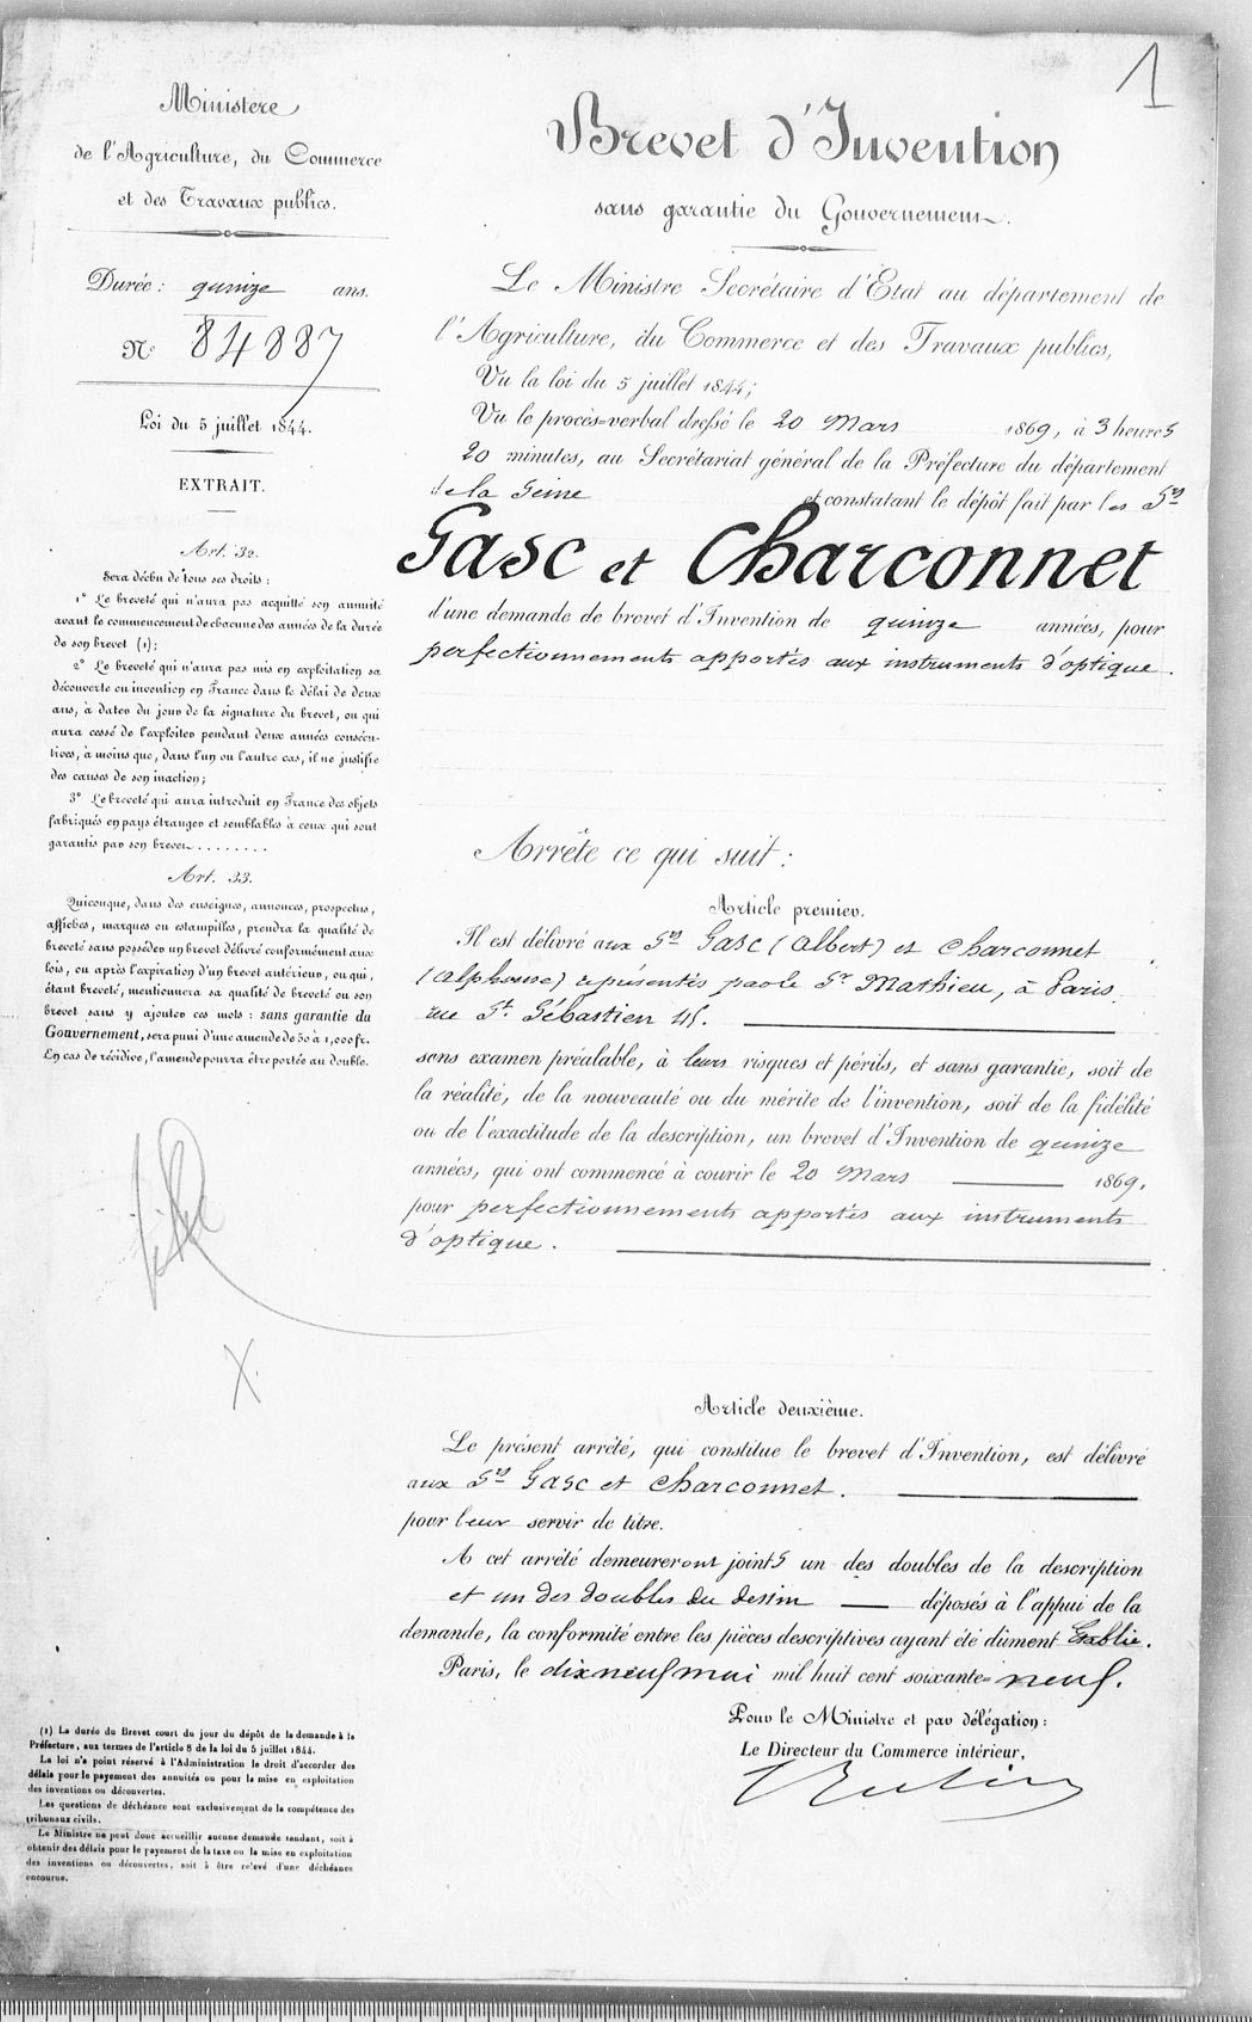 1
Ministère
de l'Agriculture, du Commerce
et des Travaux publics.
Durée : quinze ans.
N° 84887
Loi du 5 juillet 1844.
EXTRAIT.
Art. 32.
Sera déchu de tous ses droits :
1° Le breveté qui n'aura pas acquitté son annuité
avant le commencement de chacune des années de la durée
de son brevet (1);
2° Le breveté qui n'aura pas mis en exploitation sa
découverte ou invention en France dans le délai de deux
ans, à dater du jour de la signature du brevet, ou qui
aura cessé de l'exploiter pendant deux années consécu-
tives, à moins que, dans l'un ou l'autre cas, il ne justifie
des causes de son inaction;
3° Le breveté qui aura introduit en France des objets
fabriqués en pays étranger et semblables à ceux qui sont
garantis par son brevet........
Art. 33.
Quiconque, dans des enseignes, annonces, prospectus,
affiches, marques ou estampilles, prendra la qualité de
breveté sans posséder un brevet délivré conformément aux
lois, ou après l'expiration d'un brevet antérieur, ou qui,
étant breveté, mentionnera sa qualité de breveté ou son
brevet sans y ajouter ces mots : sans garantie du
Gouvernement, sera puni d'une amende de 50 à 1,000 fr.
En cas de récidive, l'amende pourra être portée au double.
X.
(1) La durée du Brevet court du jour du dépôt de la demande à la
Préfecture, aux termes de l'article 8 de la loi du 5 juillet 1844.
La loi n'a point réservé à l'Administration le droit d'accorder des
délais pour le payement des annuités ou pour la mise en exploitation
des inventions ou découvertes.
Les questions de déchéance sont exclusivement de la compétence des
tribunaux civils.
Le Ministre ne peut donc accueillir aucune demande tendant, soit à
obtenir des délais pour le payement de la taxe ou la mise en exploitation
des inventions ou découvertes, soit à être relevé d'une déchéance
encourue.
Brevet d'Invention
sans garantie du Gouvernement.
Le Ministre Secrétaire d'État au département de
l'Agriculture, du Commerce et des Travaux publics,
Vu la loi du 5 juillet 1844;
Vu le procès-verbal dressé le 20 Mars 1869, à 3 heures
20 minutes, au Secrétariat général de la Préfecture du département
de la Seine et constatant le dépôt fait par les Srs
Gasc et Charconnet
d'une demande de brevet d'Invention de quinze années, pour
perfectionnements apportés aux instruments d'optique.
Arrête ce qui suit :
Article premier.
Il est délivré aux Srs Gasc (Albert) et Charconnet
(Alphonse) représentés par le Sr Mathieu, à Paris,
rue St. Sébastien 45.
sans examen préalable, à leurs risques et périls, et sans garantie, soit de
la réalité, de la nouveauté ou du mérite de l'invention, soit de la fidélité
ou de l'exactitude de la description, un brevet d'Invention de quinze
années, qui ont commencé à courir le 20 Mars 1869,
pour perfectionnements apportés aux instruments
d'optique.
Article deuxième.
Le présent arrêté, qui constitue le brevet d'Invention, est délivré
aux Srs Gasc et Charconnet.
pour leur servir de titre.
A cet arrêté demeureront joints un des doubles de la description
et un des doubles du dessin déposés à l'appui de la
demande, la conformité entre les pièces descriptives ayant été dûment établie.
Paris, le dix neuf mai mil huit cent soixante-neuf.
Pour le Ministre et par délégation :
Le Directeur du Commerce intérieur,